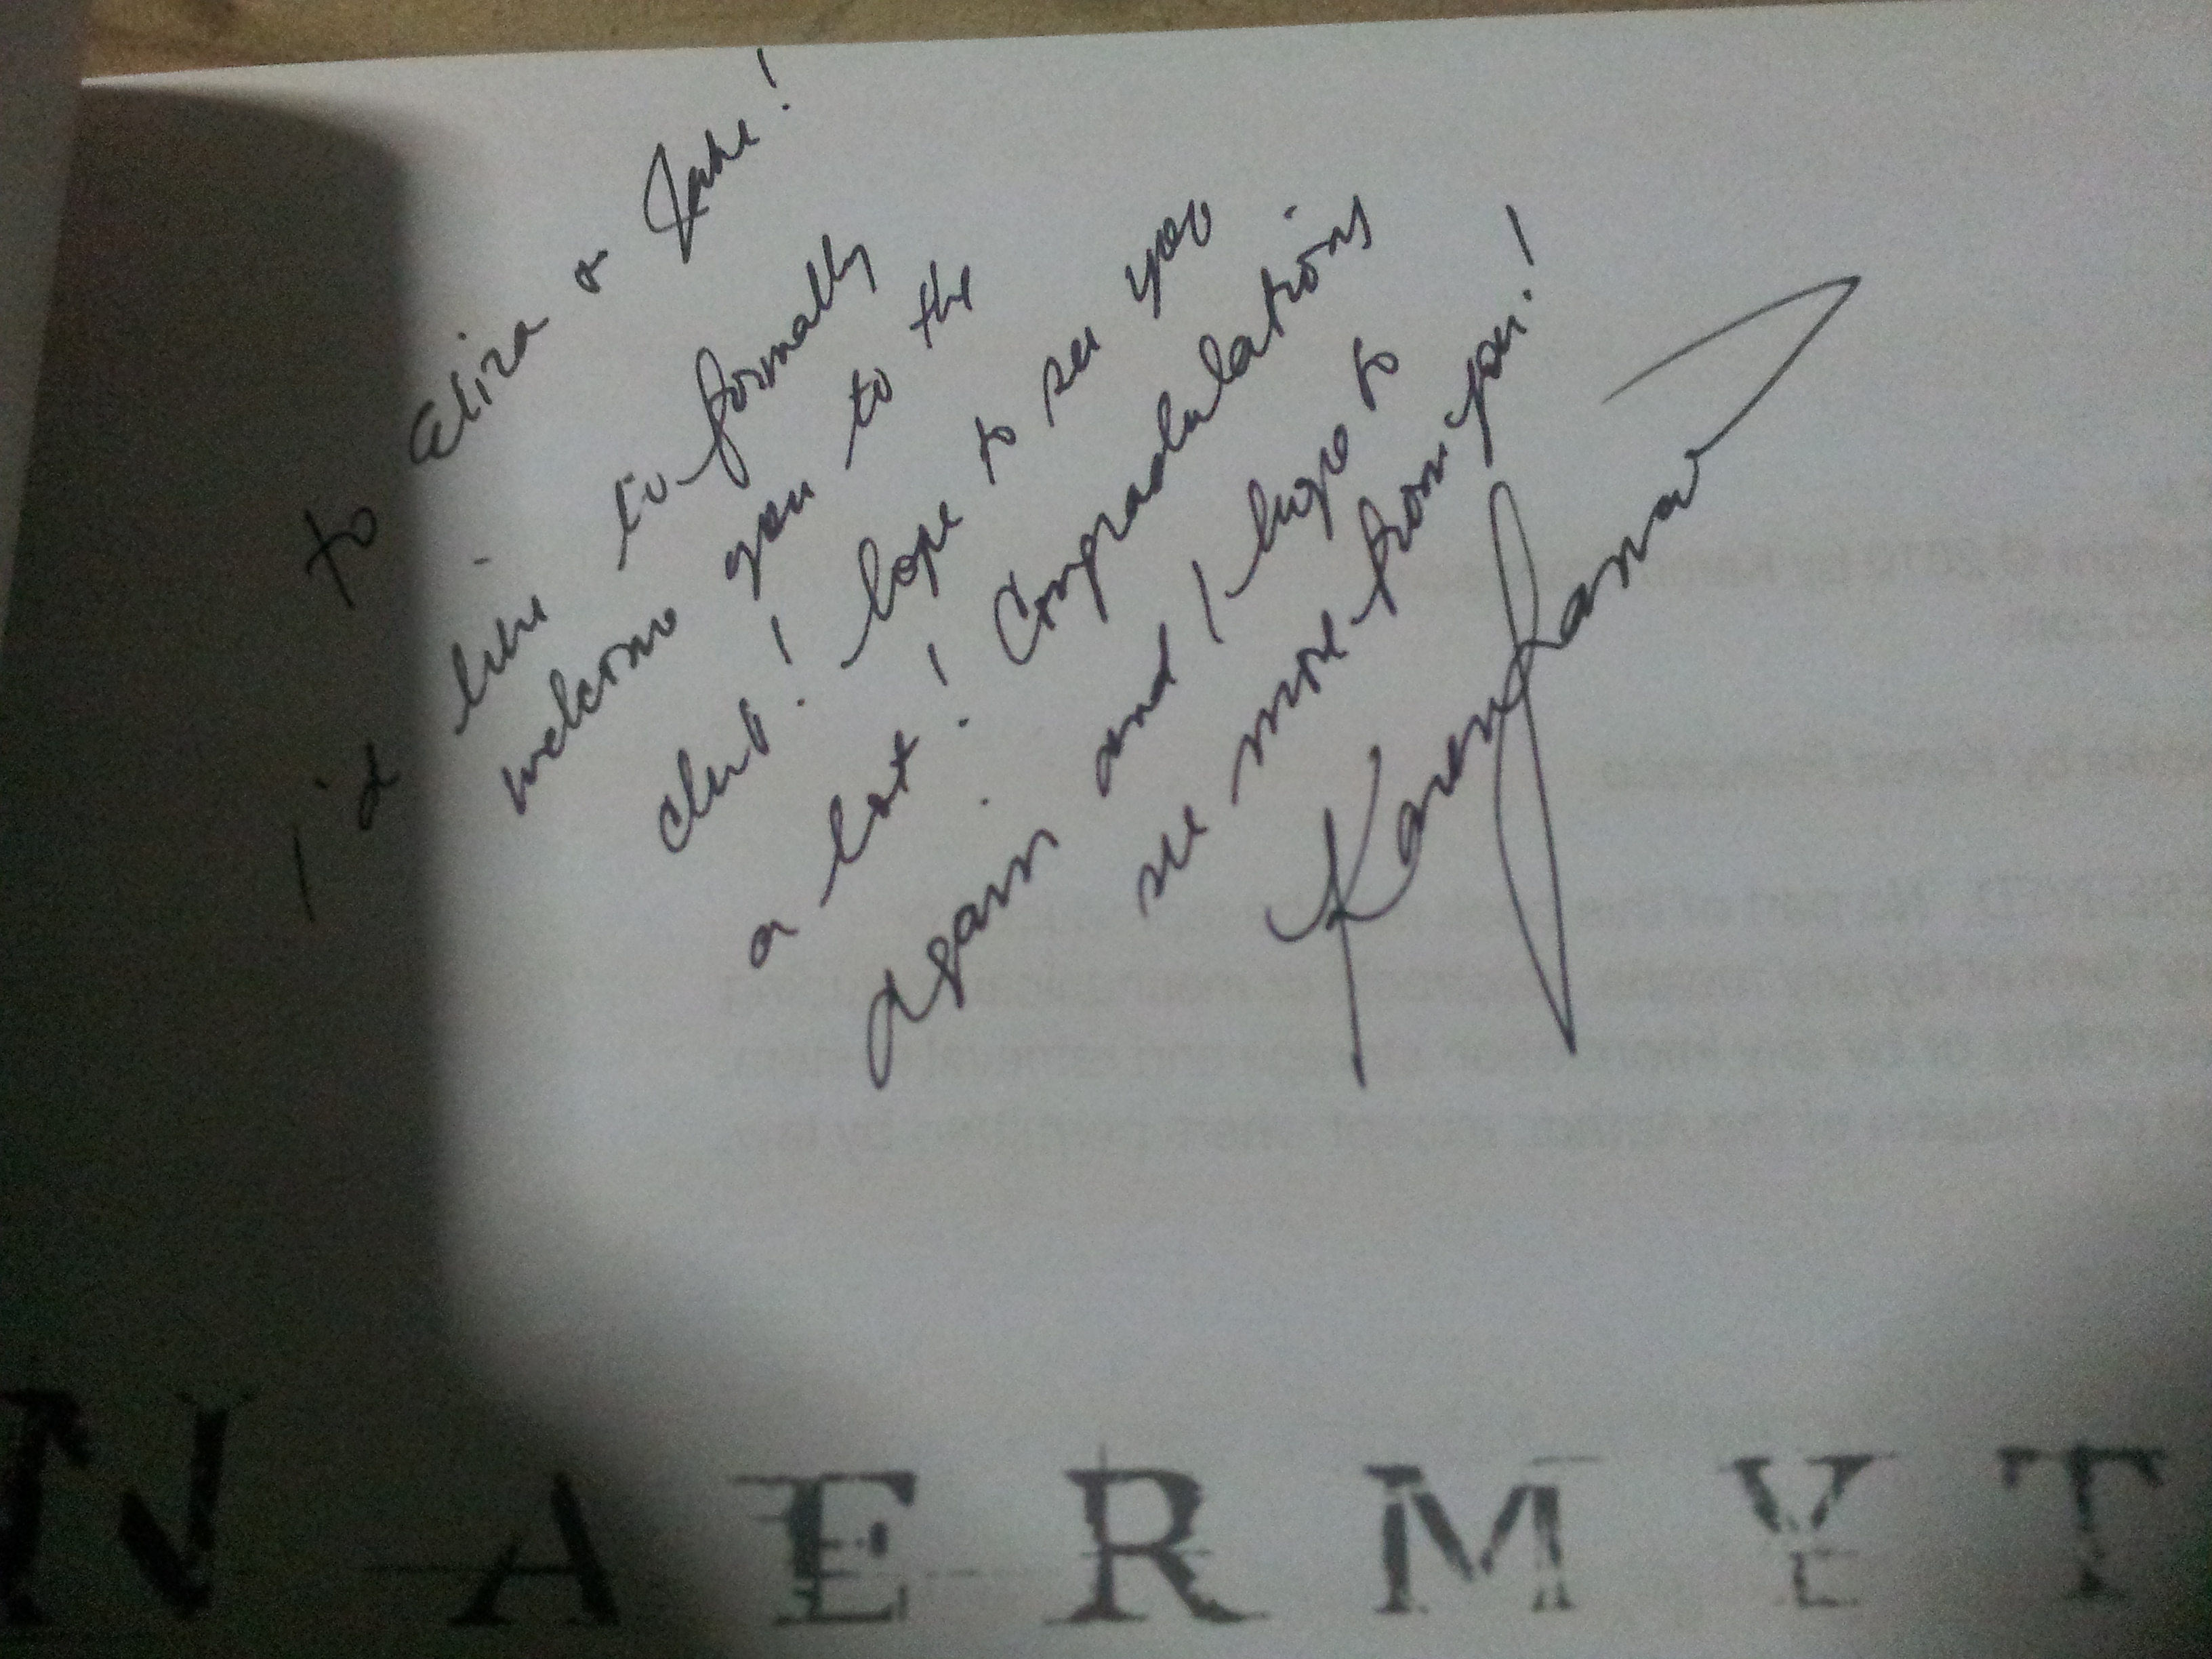 to Eliza & Jake!
I'd like to formally
welcome you to the
club! hope to see you
a lot! Congradulations
again and I hope to
see more from you!
Karen
N A E R M Y T